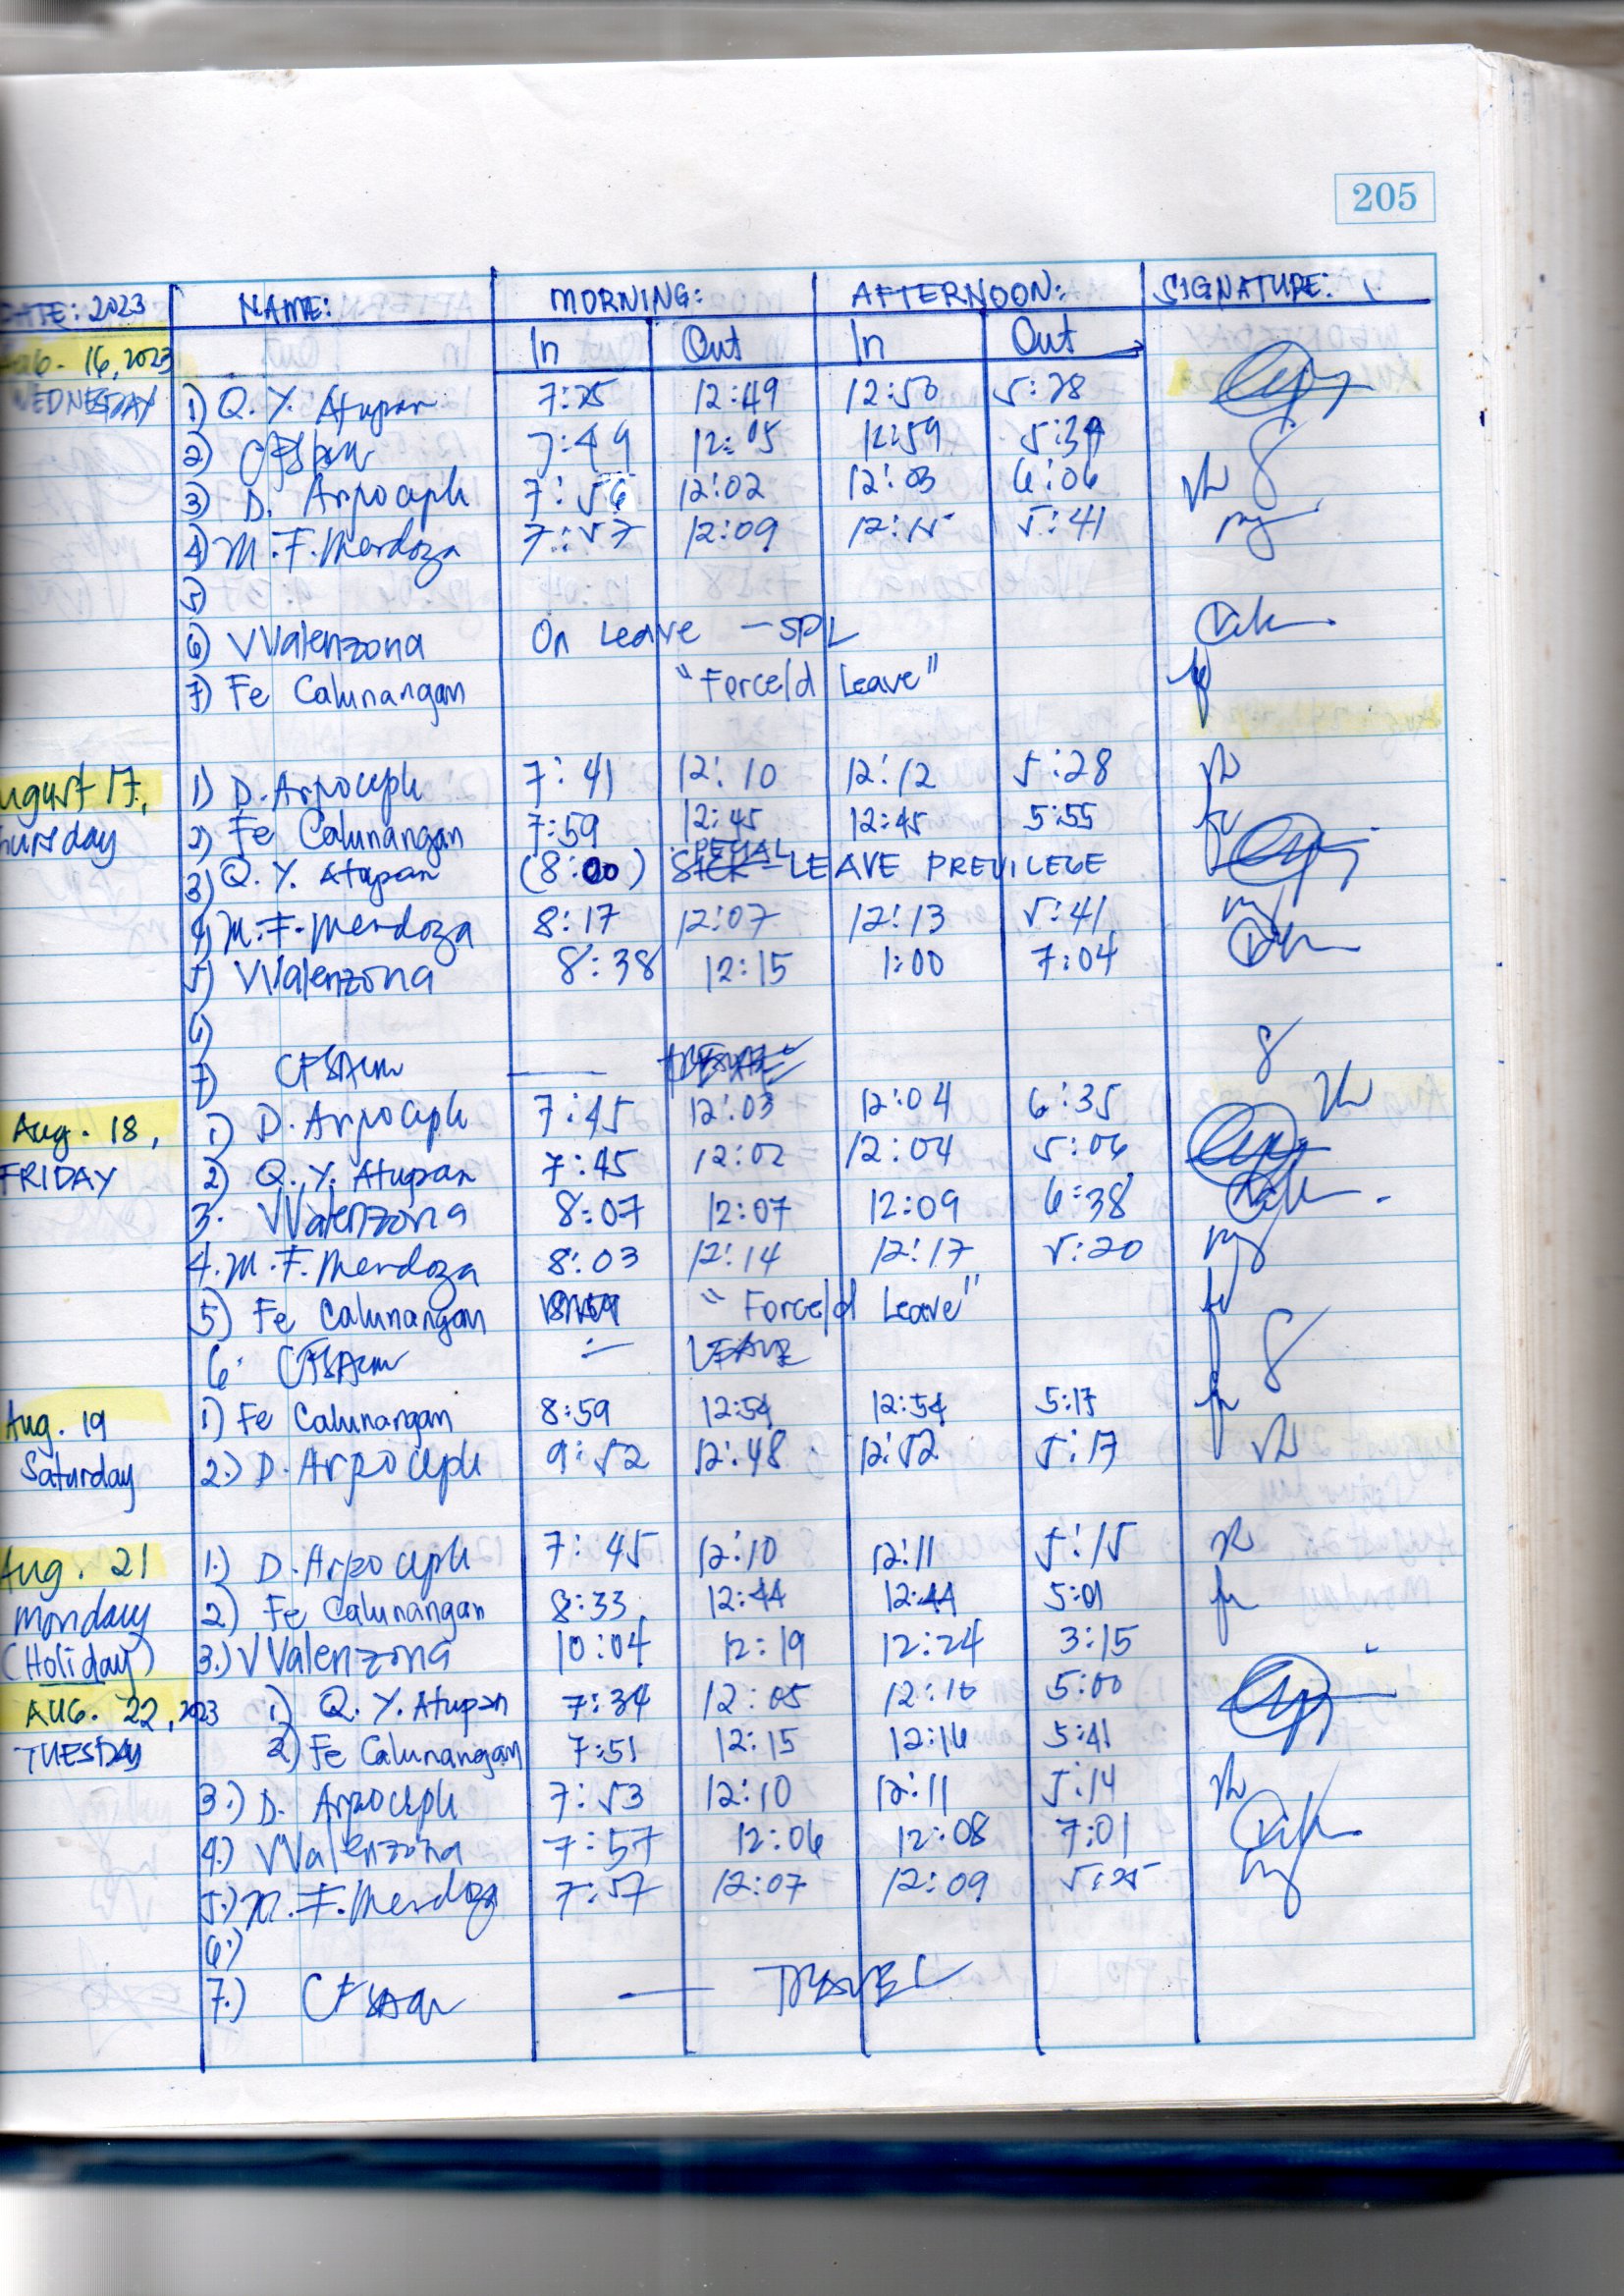 205
DATE: 2023 NAME: MORNING: AFTERNOON: SIGNATURE:
In Out In Out
Aug. 16, 2023
WEDNESDAY 1) Q. Y. Atupan 7:25 12:49 12:50 5:28
2) 7:49 12:05 12:59 5:39
3) D. Arpoceple 7:56 12:02 12:03 6:06
4) M. F. Mendoza 7:57 12:09 12:15 5:41
5)
6) VValenzona On Leave - SPL
7) Fe Calunangan "Forced Leave"
August 17, 1) D. Arpoceple 7:41 12:10 12:12 5:28
Thursday 2) Fe Calunangan 7:59 12:45 12:45 5:55
3) Q. Y. Atupan (8:00) SPECIAL LEAVE PREVILEGE
4) M. F. Mendoza 8:17 12:07 12:13 5:41
5) VValenzona 8:38 12:15 1:00 7:04
6)
7)
Aug. 18, 1) D. Arpoceple 7:45 12:03 12:04 6:35
FRIDAY 2) Q. Y. Atupan 7:45 12:02 12:04 5:06
3. VValenzona 8:07 12:07 12:09 6:38
4. M. F. Mendoza 8:03 12:14 12:17 5:20
5) Fe Calunangan "Forced Leave"
6. LEAVE
Aug. 19 1) Fe Calunangan 8:59 12:54 12:54 5:17
Saturday 2.) D. Arpoceple 9:52 12:48 12:52 5:17
Aug. 21 1.) D. Arpoceple 7:45 12:10 12:11 5:15
Monday 2) Fe Calunangan 8:33 12:44 12:44 5:01
(Holiday) 3.) VValenzona 10:04 12:19 12:24 3:15
AUG. 22, 2023 1) Q. Y. Atupan 7:34 12:05 12:10 5:00
TUESDAY 2) Fe Calunangan 7:51 12:15 12:16 5:41
3.) D. Arpoceple 7:53 12:10 12:11 5:14
4.) VValenzona 7:57 12:06 12:08 7:01
5.) M. F. Mendoza 7:57 12:07 12:09 5:25
6.)
7.) TRAVEL